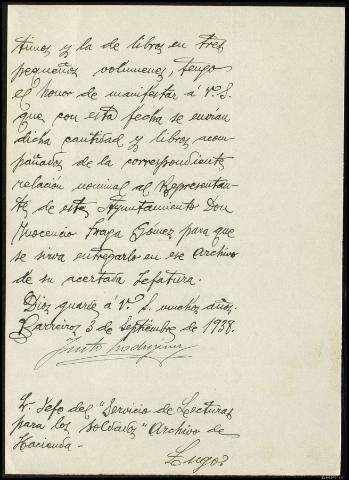 timos y la de libros en tres
pequeños volumenes, tengo
el honor de manifestar á V. S.
que con esta fecha se envian
dicha cantidad y libros acom-
pañados de la correspondiente
relación nominal al Representan-
te de este Ayuntamiento Don
Inocencio Fraga Gómez para que
se sirva entregarlo en ese Archivo
de su acertada Jefatura.
Dios guarde á V. S. muchos años.
Barreiros 3 de Septiembre de 1938.
Justo Rodríguez
Sr. Jefe del "Servicio de Lecturas
para los soldados" Archivo de
Hacienda-
Lugo